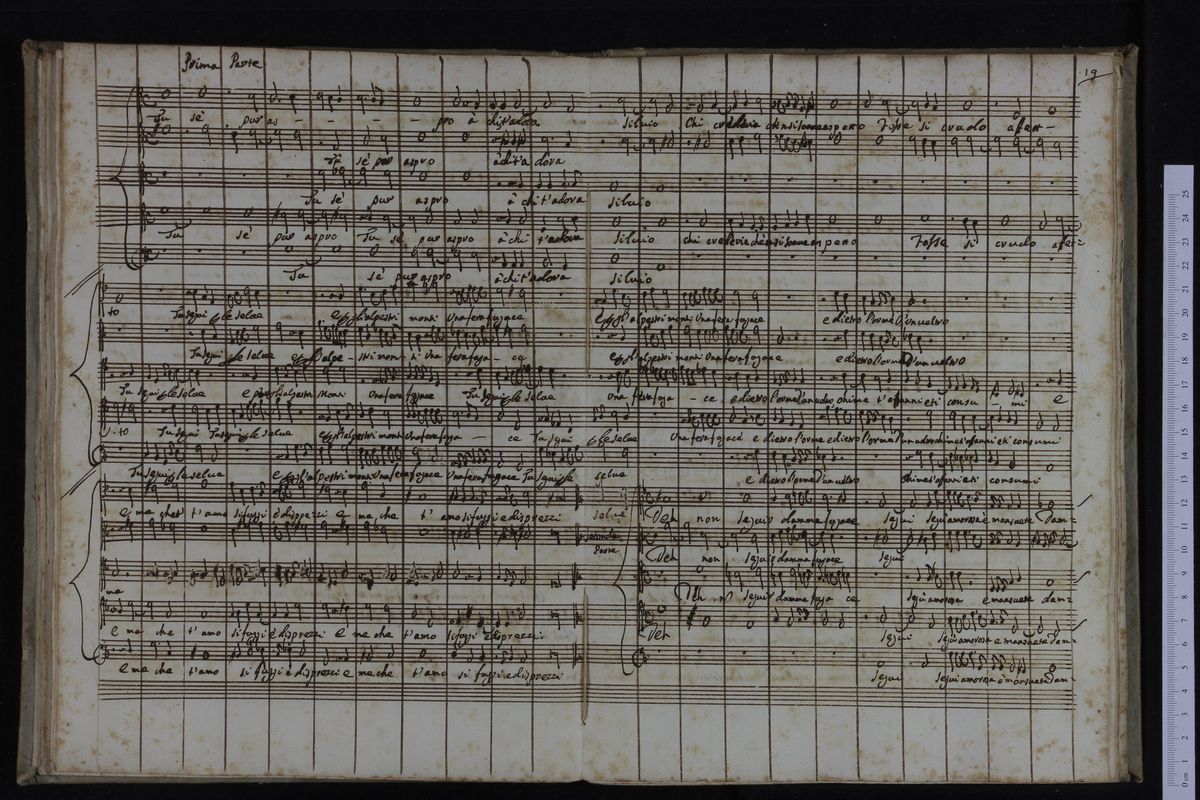 Prima Parte
19
Tu se' pur as - - - - pro à chi t'adora Silvio Chi crederia che in si soave aspetto Fosse si crudo affet-
Tu se' pur aspro à chi t'a dora
Tu se' pur aspro à chi t'adora silvio
Tu se' pur aspro Tu se' pur aspro à chi t'adora silvio chi crederia che in si soave aspetto Fosse si crudo affet-
Tu se' pur aspro à chi t'adora silvio
to Tu segui per le selve e per gl'alpestri monti Una fera fugace e per gl'alpestri monti Una fera fugace e dietro l'orme d'un veltro
Tu segui per le selve e per gl'alpe - stri mon - ti Una fera fuga - ce e per gl'alpestri monti Una fera fugace e dietro l'orme d'un veltro
Tu segui per le selve e per gl'alpestri monti Una fera fugace Tu segui per le selve Una fera fuga - ce e dietro l'orme d'un veltro ohime t'affanni e ti consu mi E
to Tu segui Tu segui per le selve e per gl'alpestri monti Una fera fuga - ce Tu segui per le selve Una fera fugace e dietro l'orme e dietro l'orme d'un veltro ohime t'affanni e ti consumi
Tu segui per le selve e per gl'alpestri monti Una fera fugace Una fera fugace Tu segui per le selve e dietro l'orme d'un veltro ohime t'affanni e ti consumi
E me che t'amo si fuggi e disprezzi e me che t'amo si fuggi e disprezzi
seconda
Parte
Deh non seguir damma fugace segui segui amorosa e mansueta dam-
Deh non seguir damma fugace segui
Deh nò seguir damma fuga ce segui amorosa e mansueta dam-
ma
E me che t'amo si fuggi e disprezzi e me che t'amo si fuggi e disprezzi
Deh segui segui amorosa e mansueta dam-
E me che t'amo si fuggi e disprezzi e me che t'amo si fuggi e disprezzi segui segui amorosa e mansueta dam-